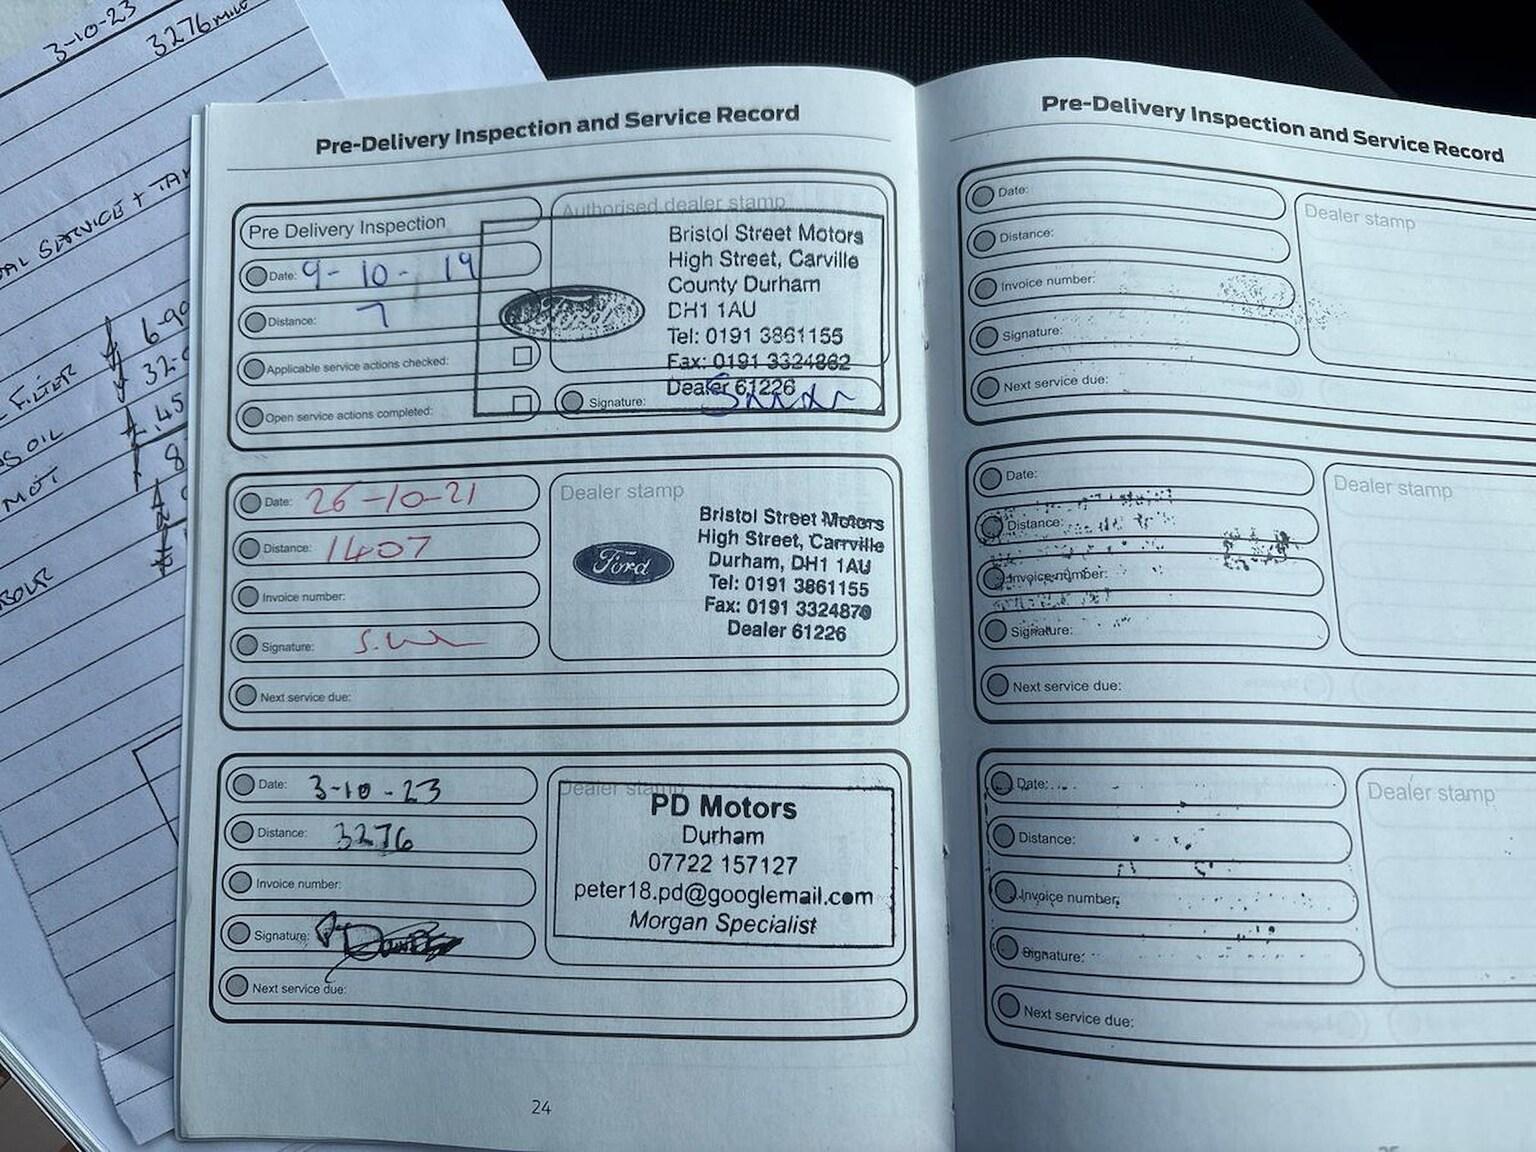 3-10-23
3276 MILE
SERVICE + TA
6-90
FILTER
32-
OIL
45
MOT
8
Pre-Delivery Inspection and Service Record
Pre Delivery Inspection
Date: 9-10-19
Distance: 7
Applicable service actions checked:
Open service actions completed:
Authorised dealer stamp
Bristol Street Motors
High Street, Carville
County Durham
DH1 1AU
Tel: 0191 3861155
Fax: 0191 3324862
Dealer 61226
Signature:
Date: 26-10-21
Distance: 1407
Invoice number:
Signature:
Next service due:
Dealer stamp
Ford
Bristol Street Motors
High Street, Carrville
Durham, DH1 1AU
Tel: 0191 3861155
Fax: 0191 3324870
Dealer 61226
Date: 3-10-23
Distance: 3276
Invoice number:
Signature:
Next service due:
Dealer stamp
PD Motors
Durham
07722 157127
peter18.pd@googlemail.com
Morgan Specialist
24
Pre-Delivery Inspection and Service Record
Date:
Distance:
Invoice number:
Signature:
Next service due:
Dealer stamp
Date:
Distance:
Invoice number:
Signature:
Next service due:
Dealer stamp
Date:
Distance:
Invoice number:
Signature:
Next service due:
Dealer stamp